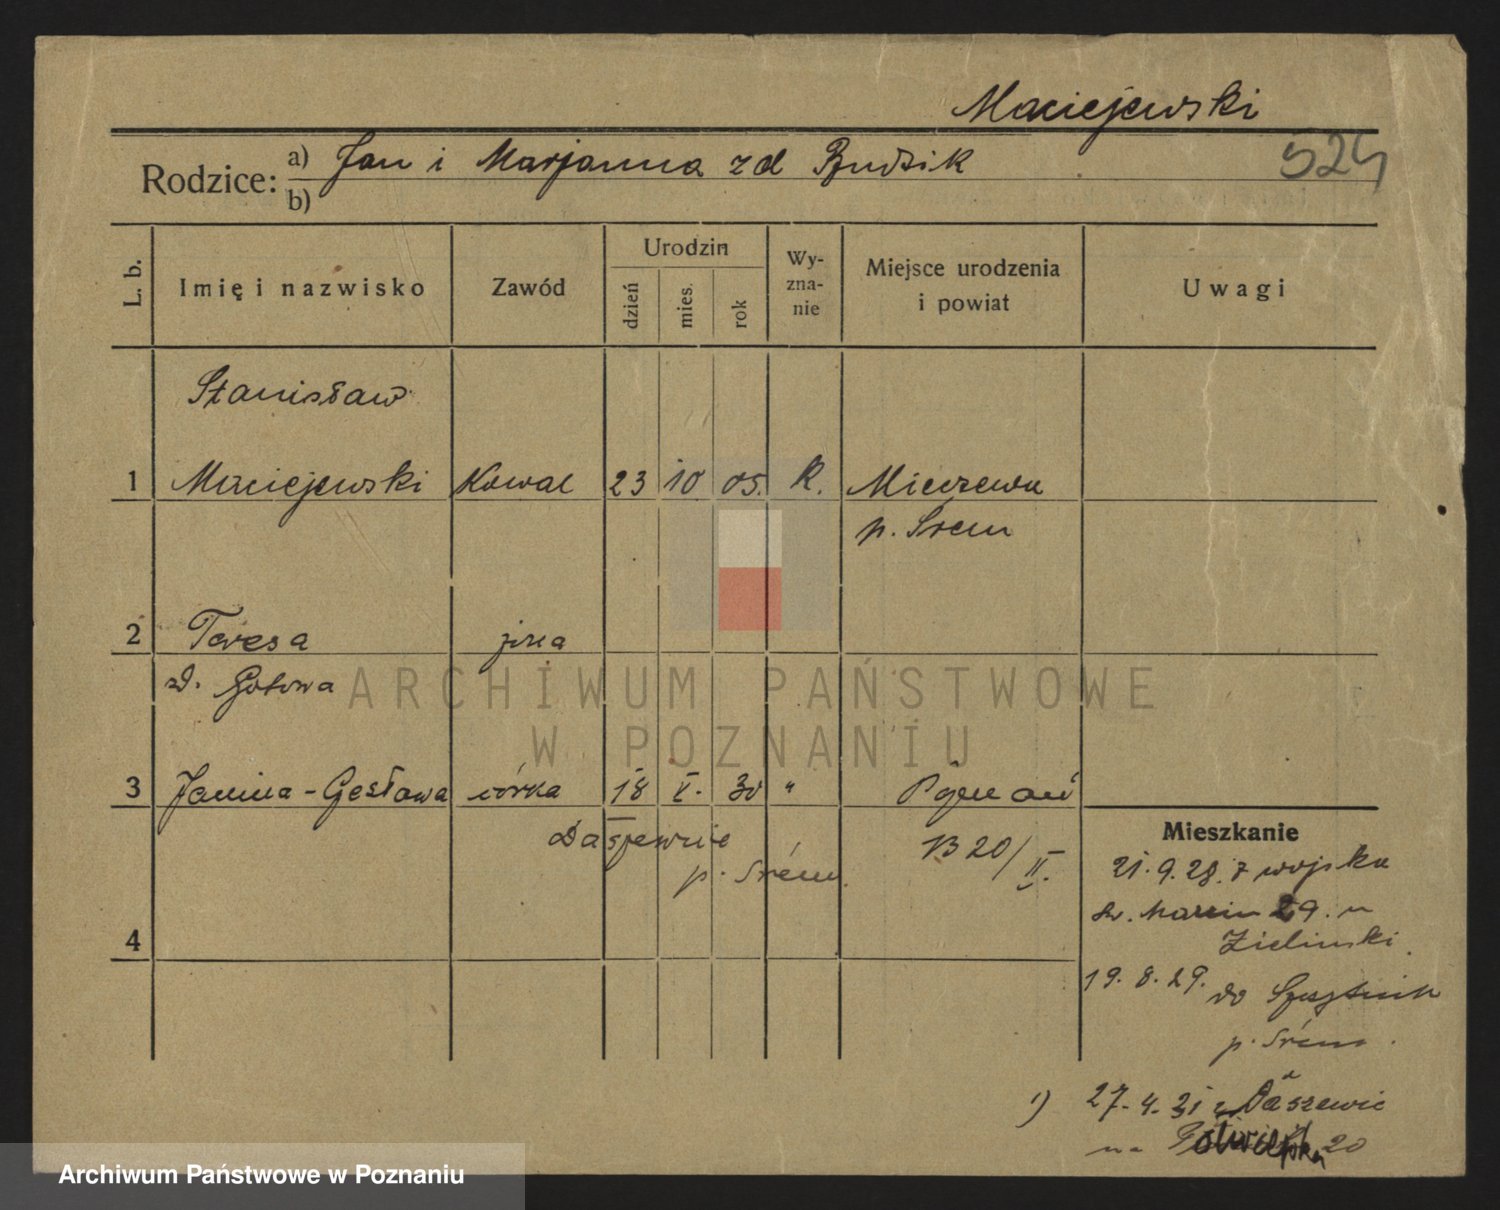 Maciejewski
524
Rodzice: a) Jan i Marjanna zd Budzik
b)
L. b. Imię i nazwisko Zawód Urodzin dzień mies. rok Wy-zna-nie Miejsce urodzenia i powiat Uwagi
Stanisław
1 Maciejewski Kowal 23 10 05. R. Mieczewo
p. Śrem
2 Teresa żona
zd. Gołowa
3 Janina-Czesława córka 18 V. 30 " Poznań
Daszewice B 20/II.
p. Śrem.
4
Mieszkanie
21.9.28. z wojska
św. Marcin 29. u
Zieliński.
19.8.29. do Szczytnik
p. Śrem.
1) 27-4-31 z Daszewic
na 20
ARCHIWUM PAŃSTWOWE
W POZNANIU
Archiwum Państwowe w Poznaniu